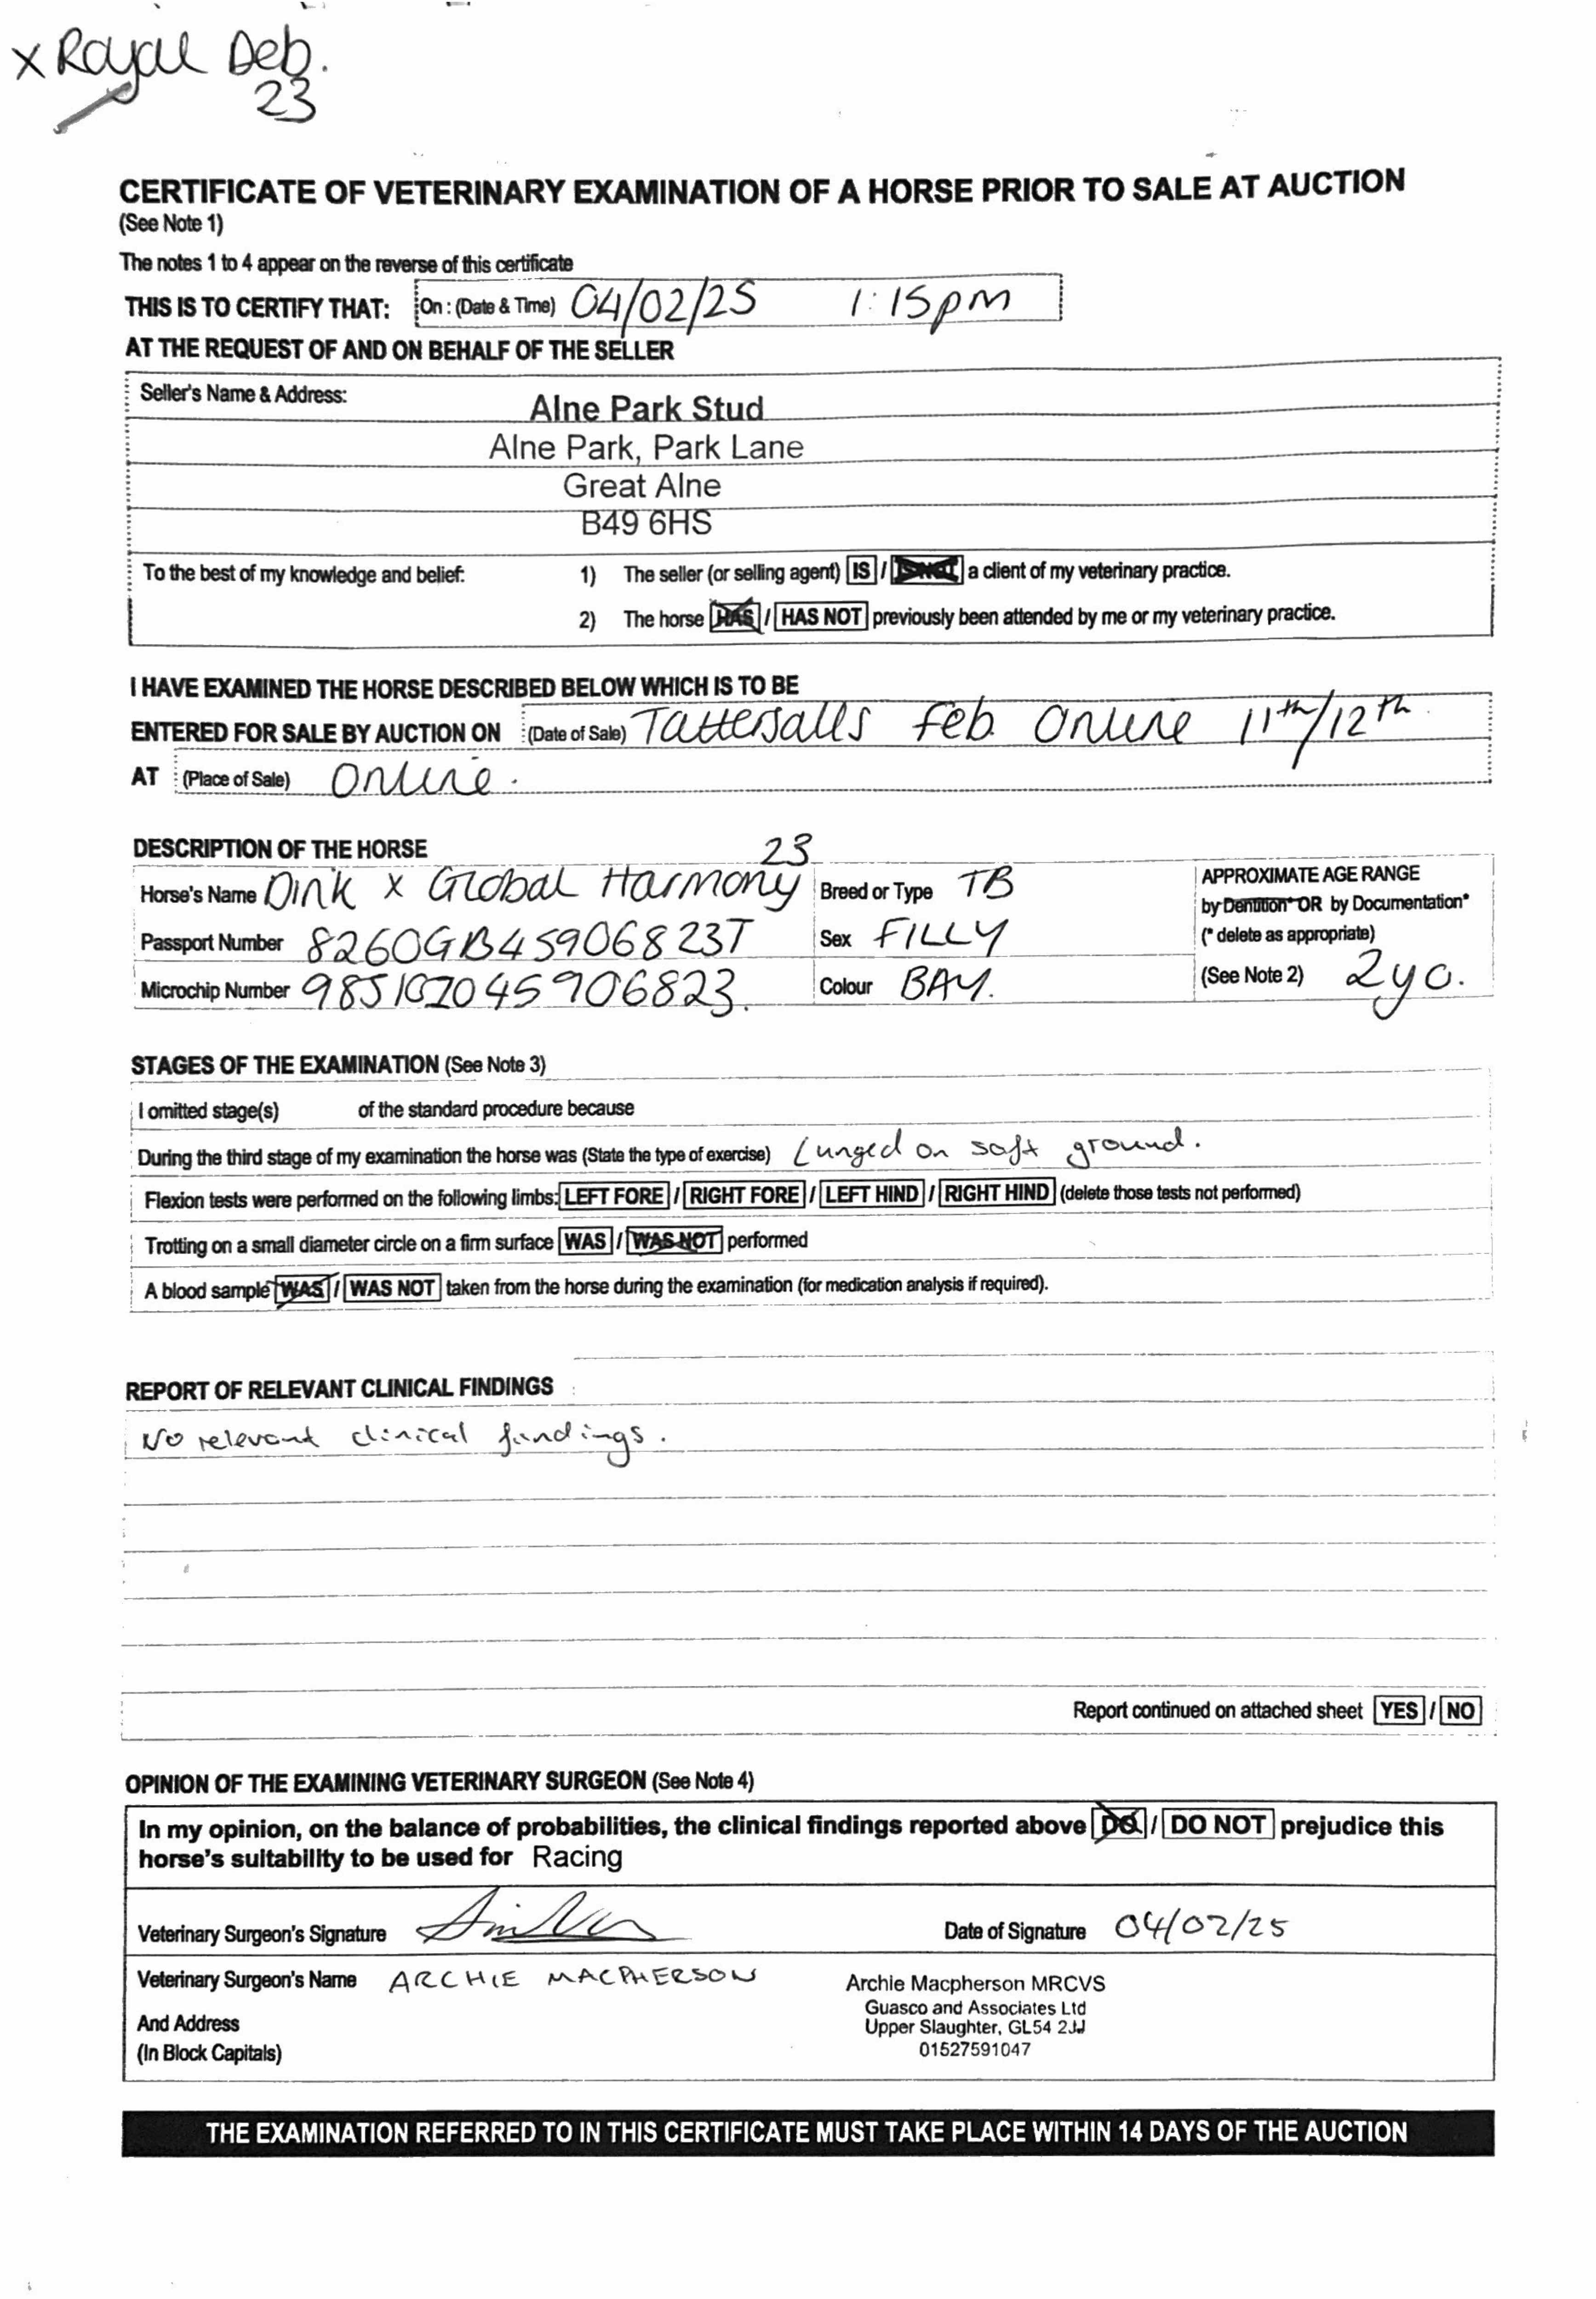 x Royal Deb.
23
CERTIFICATE OF VETERINARY EXAMINATION OF A HORSE PRIOR TO SALE AT AUCTION
(See Note 1)
The notes 1 to 4 appear on the reverse of this certificate
THIS IS TO CERTIFY THAT: On : (Date & Time) 04/02/25 1:15pm
AT THE REQUEST OF AND ON BEHALF OF THE SELLER
Seller's Name & Address:
Alne Park Stud
Alne Park, Park Lane
Great Alne
B49 6HS
To the best of my knowledge and belief: 1) The seller (or selling agent) IS / IS NOT a client of my veterinary practice.
2) The horse HAS / HAS NOT previously been attended by me or my veterinary practice.
I HAVE EXAMINED THE HORSE DESCRIBED BELOW WHICH IS TO BE
ENTERED FOR SALE BY AUCTION ON (Date of Sale) Tattersalls Feb. Online 11th/12th.
AT (Place of Sale) Online.
DESCRIPTION OF THE HORSE 23
Horse's Name Dink x Global Harmony Breed or Type TB APPROXIMATE AGE RANGE
by Dentition* OR by Documentation*
Passport Number 8260GB45906823T Sex FILLY (* delete as appropriate)
Microchip Number 985102045906823. Colour BAY. (See Note 2) 2yo.
STAGES OF THE EXAMINATION (See Note 3)
I omitted stage(s) of the standard procedure because
During the third stage of my examination the horse was (State the type of exercise) Lunged on soft ground.
Flexion tests were performed on the following limbs: LEFT FORE / RIGHT FORE / LEFT HIND / RIGHT HIND (delete those tests not performed)
Trotting on a small diameter circle on a firm surface WAS / WAS NOT performed
A blood sample WAS / WAS NOT taken from the horse during the examination (for medication analysis if required).
REPORT OF RELEVANT CLINICAL FINDINGS
No relevant clinical findings.
Report continued on attached sheet YES / NO
OPINION OF THE EXAMINING VETERINARY SURGEON (See Note 4)
In my opinion, on the balance of probabilities, the clinical findings reported above DO / DO NOT prejudice this
horse's suitability to be used for Racing
Veterinary Surgeon's Signature Date of Signature 04/02/25
Veterinary Surgeon's Name ARCHIE MACPHERSON Archie Macpherson MRCVS
Guasco and Associates Ltd
And Address Upper Slaughter, GL54 2JJ
(In Block Capitals) 01527591047
THE EXAMINATION REFERRED TO IN THIS CERTIFICATE MUST TAKE PLACE WITHIN 14 DAYS OF THE AUCTION